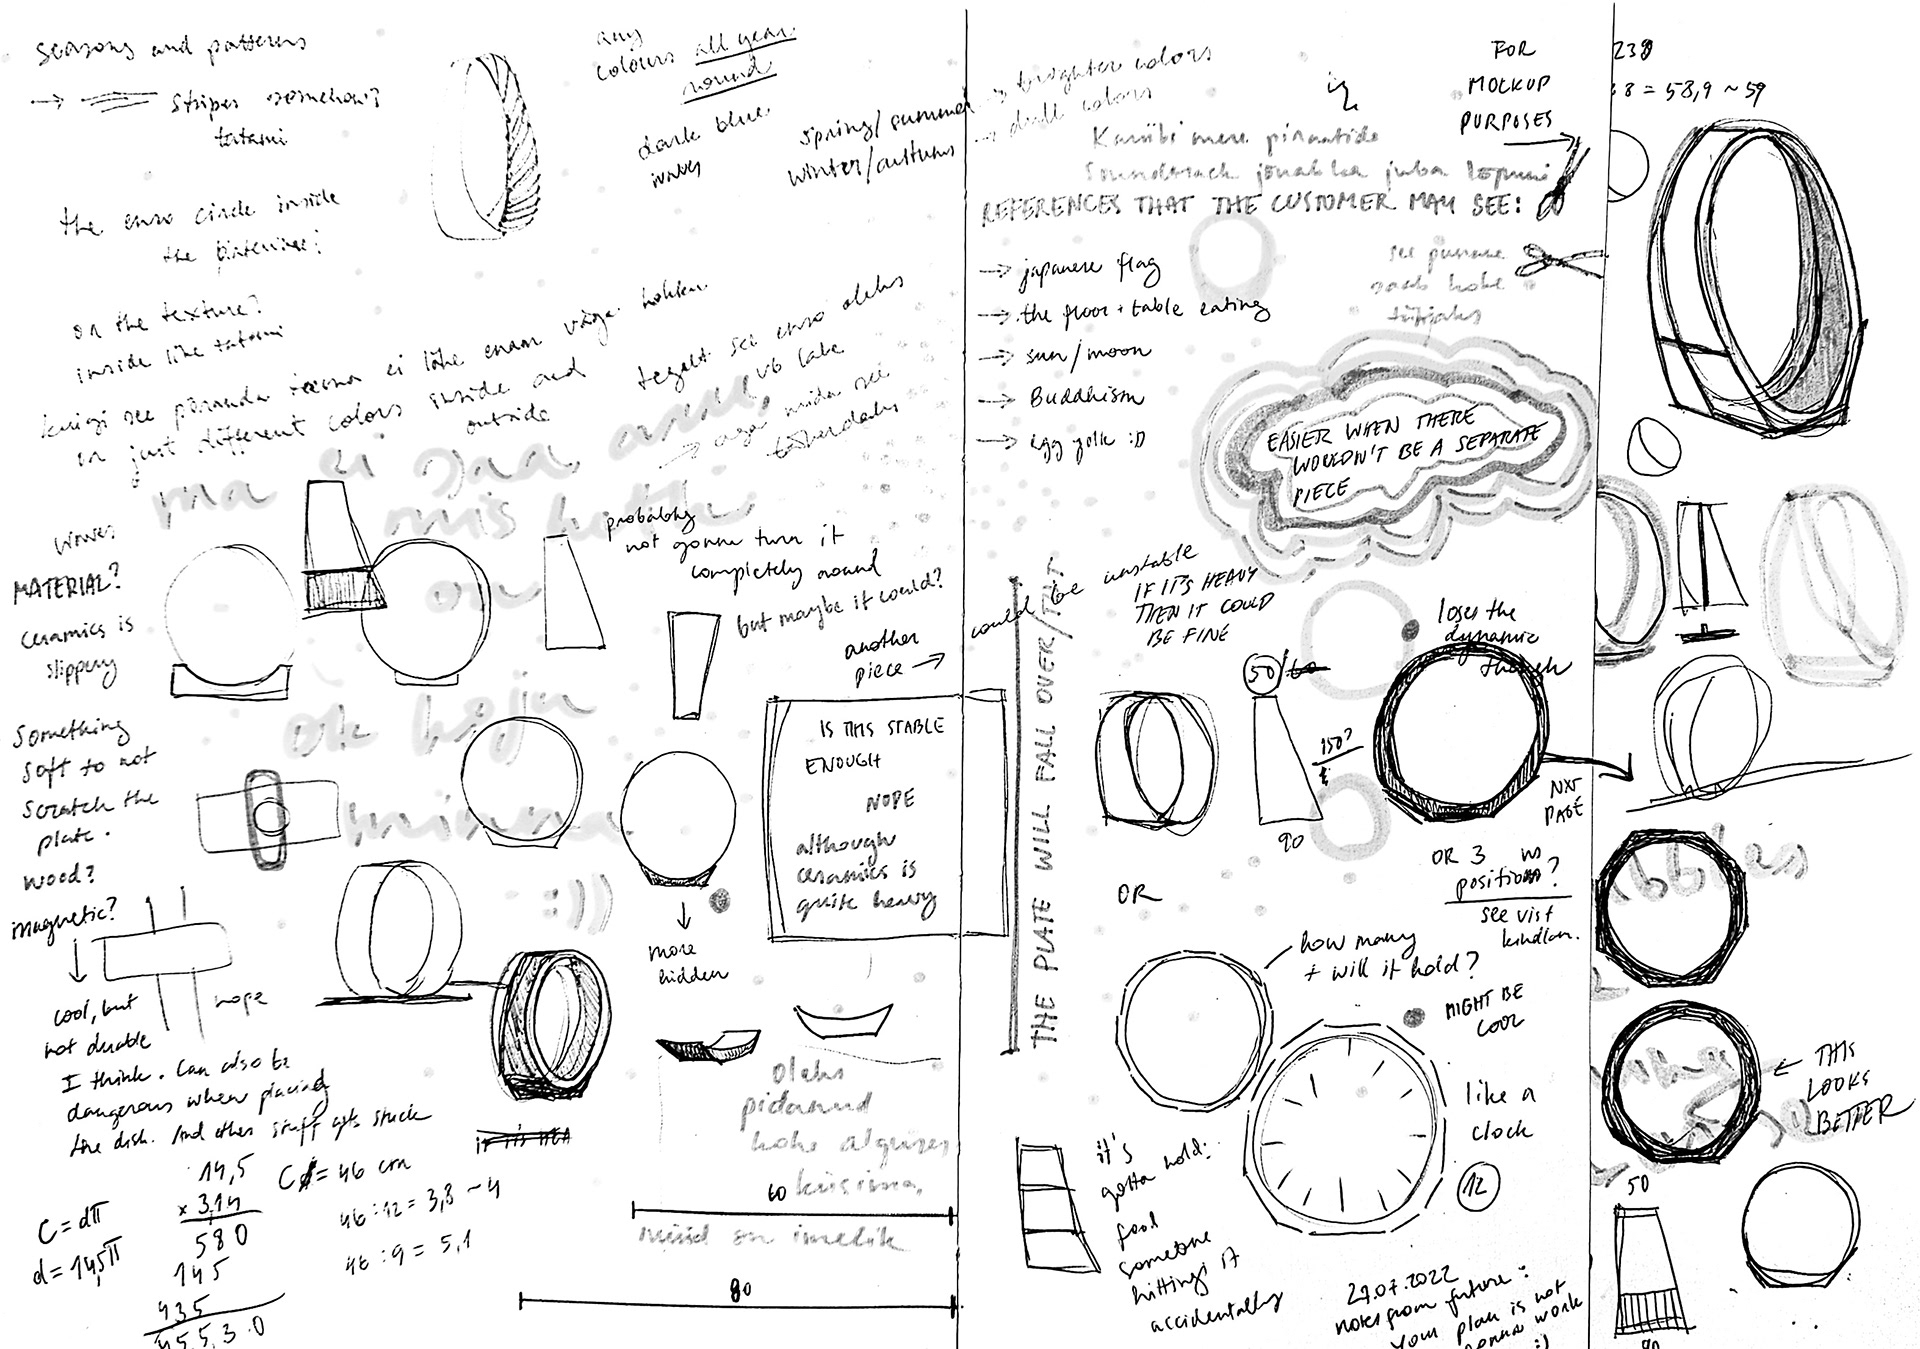 seasons and patterns
→ stripes somehow?
tatami
the enso circle inside
the
or the texture?
inside like tatami
or just different colors inside and
outside
any
colours all year
round
dark blue
waves
spring/summer → brighter colors
winter/autumn → dull colors
ma ei saa aru,
mis
on
ok
minna
:))
tegelt see enso oleks
aga mida see
waves
MATERIAL?
ceramics is
slippery
something
soft to not
scratch the
plate.
wood?
magnetic?
↓
cool, but
not durable
nope
I think. Can also be
dangerous when placing
the dish. And other stuff gets stuck
probably
not gonna turn it
completely around
but maybe it could?
another
piece →
IS THIS STABLE
ENOUGH
NOPE
although
ceramics is
quite heavy
↓
more
hidden
IF IT'S HEA
oleks
pidanud
kohe alguses
küsima,
60
nüüd on imelik
80
C = dπ
d = 14,5π
14,5
x 3,14
580
145
435
45,5,3.0
C = 46 cm
46 : 12 = 3,8 ~ 4
46 : 9 = 5,1
Kariibi mere piraatide
Soundtrack jõuab ka juba lõpuni
REFERENCES THAT THE CUSTOMER MAY SEE:
→ japanese flag
→ the floor + table eating
→ sun/moon
→ Buddhism
→ egg yolk :D
FOR
MOCKUP
PURPOSES
see punane
saab kohe
tühjaks
EASIER WHEN THERE
WOULDN'T BE A SEPARATE
PIECE
THE PLATE WILL FALL OVER/TILT
could be unstable
IF IT'S HEAVY
THEN IT COULD
BE FINE
loses the
dynamic
though
50/60
150?
90
NXT
PAGE
OR
OR 3
positions?
see vist
kindlam.
how many
+ will it hold?
MIGHT BE
COOL
like a
clock
12
it's
gotta hold:
food
someone
hitting it
accidentally
27.07.2022
notes from future:
your plan is not
gonna work
:)
238
8 = 58,9 ~ 59
← THIS
LOOKS
BETTER
50
90